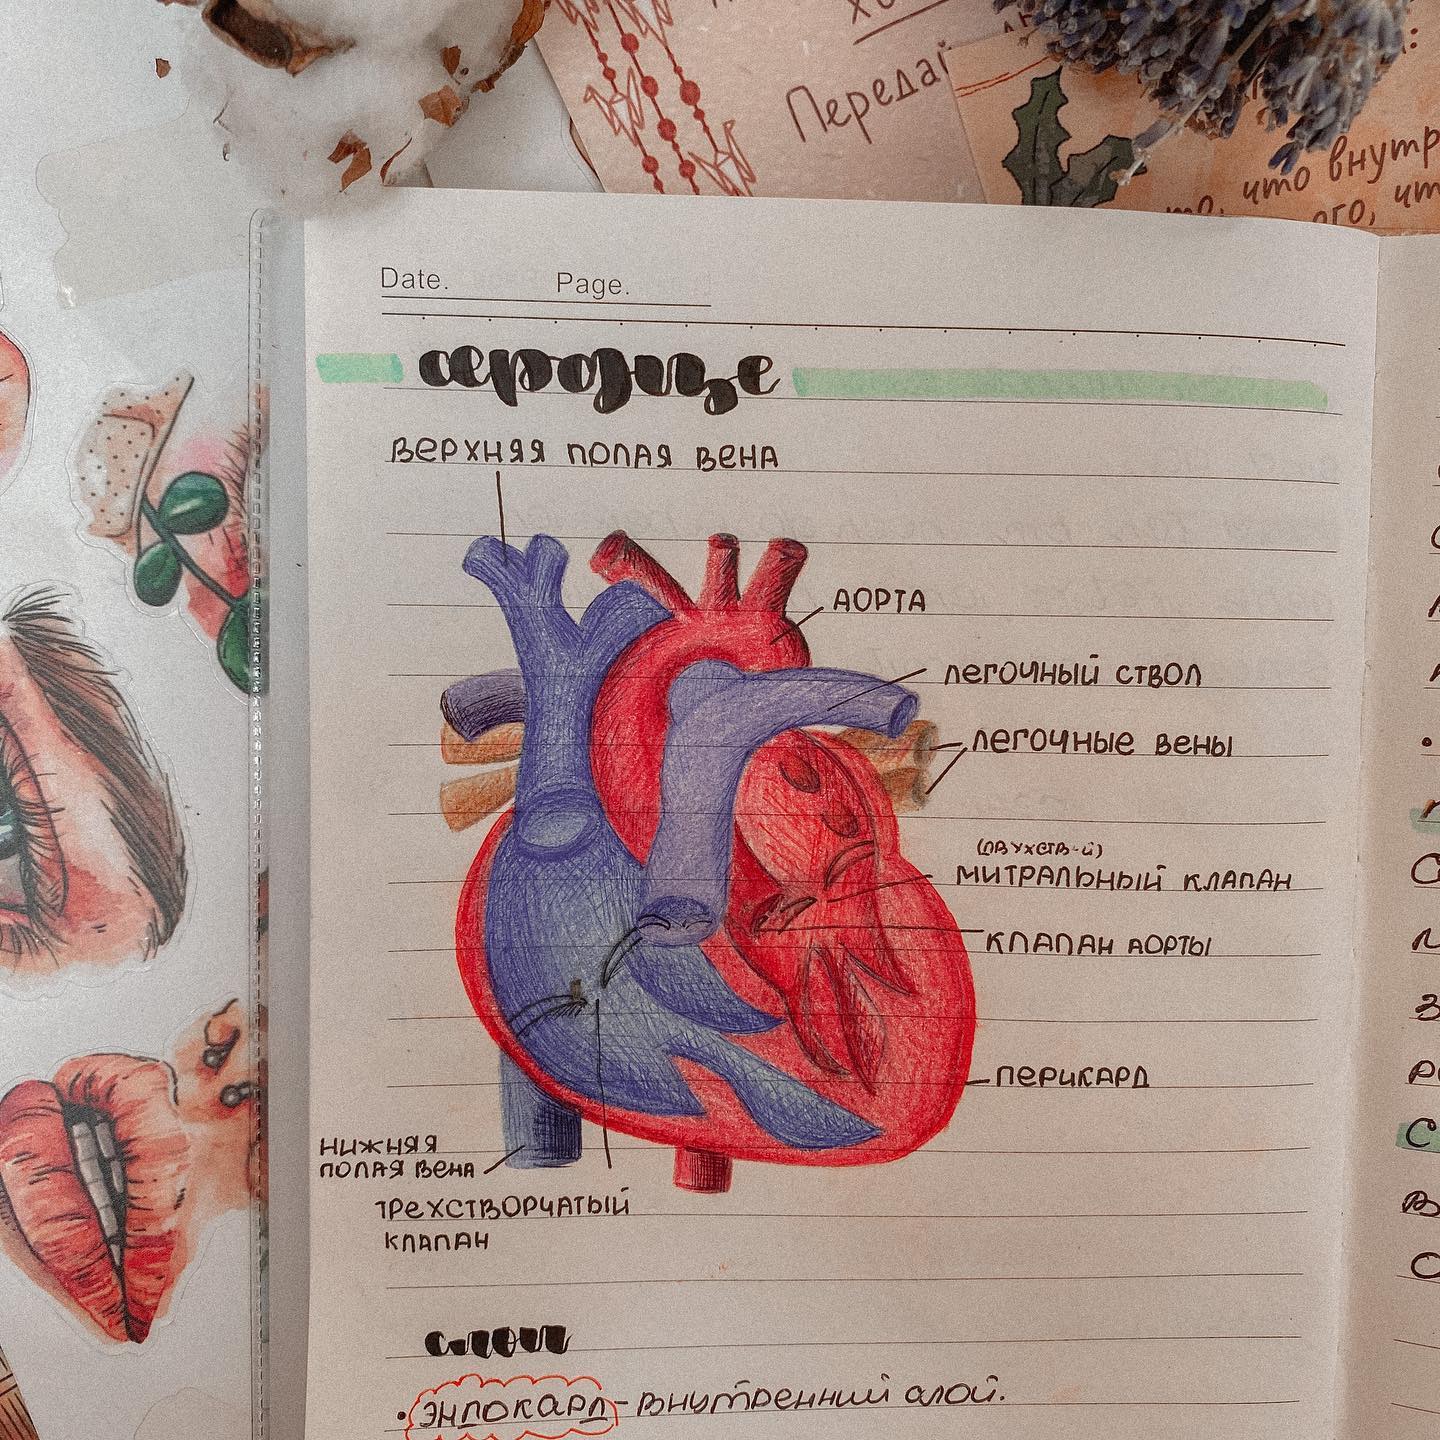 Передай
что внутр
ого, что
Date. Page.
сердце
верхняя полая вена
аорта
легочный ствол
легочные вены
(двухств-й)
митральный клапан
клапан аорты
перикард
нижняя
полая вена
трехстворчатый
клапан
слои
• эндокард - внутренний слой.